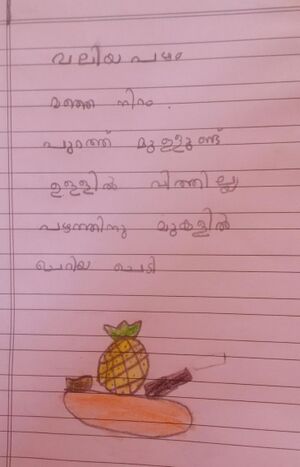 വലിയ പഴം
മഞ്ഞ നിറം.
പുറത്ത് മുള്ളുണ്ട്
ഉള്ളിൽ വിത്തില്ല
പഴത്തിനു മുകളിൽ
ചെറിയ ചെടി